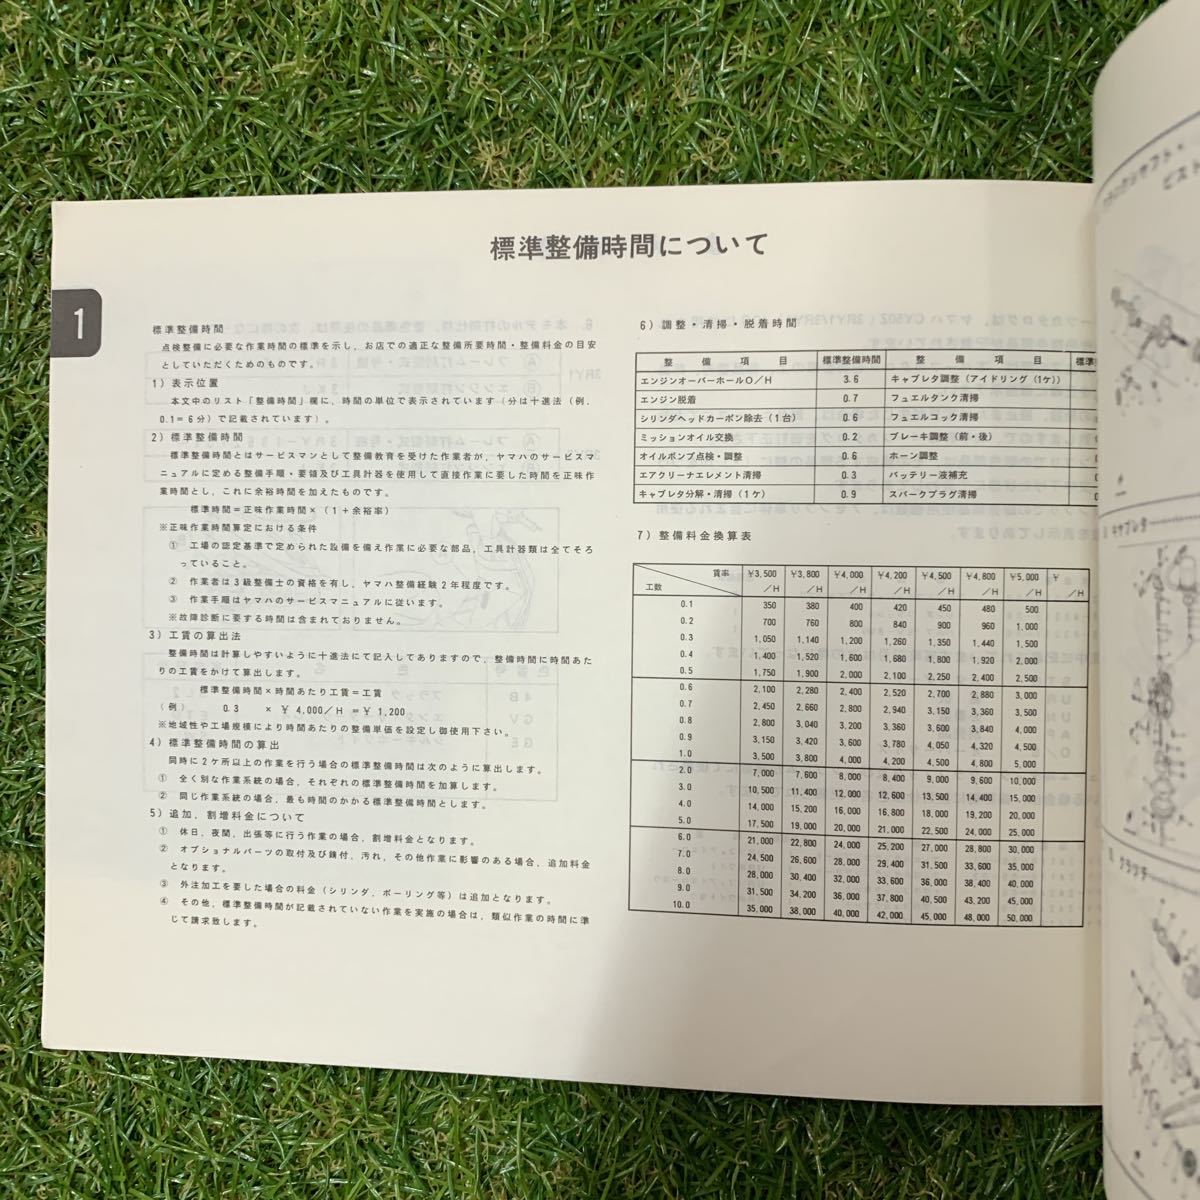 標準整備時間について
1
標準整備時間
点検整備に必要な作業時間の標準を示し、お店での適正な整備所要時間・整備料金の目安
としていただくためのものです。
1）表示位置
本文中のリスト「整備時間」欄に、時間の単位で表示されています（分は十進法（例．
0.1＝6分）で記載されています）。
2）標準整備時間
標準整備時間とはサービスマンとして整備教育を受けた作業者が、ヤマハのサービスマ
ニュアルに定める整備手順・要領及び工具計器を使用して直接作業に要した時間を正味作
業時間とし、これに余裕時間を加えたものです。
標準時間＝正味作業時間×（1＋余裕率）
※正味作業時間算定における条件
① 工場の認定基準で定められた設備を備え作業に必要な部品、工具計器類は全てそろ
っていること。
② 作業者は3級整備士の資格を有し、ヤマハ整備経験2年程度です。
③ 作業手順はヤマハのサービスマニュアルに従います。
※故障診断に要する時間は含まれておりません。
3）工賃の算出法
整備時間は計算しやすいように十進法にて記入してありますので、整備時間に時間あた
りの工賃をかけて算出します。
標準整備時間×時間あたり工賃＝工賃
（例） 0.3 × ￥4,000／H ＝￥1,200
※地域性や工場規模により時間あたりの整備単価を設定し御使用下さい。
4）標準整備時間の算出
同時に2ケ所以上の作業を行う場合の標準整備時間は次のように算出します。
① 全く別な作業系統の場合、それぞれの標準整備時間を加算します。
② 同じ作業系統の場合、最も時間のかかる標準整備時間とします。
5）追加、割増料金について
① 休日、夜間、出張等に行う作業の場合、割増料金となります。
② オプショナルパーツの取付及び錆付、汚れ、その他作業に影響のある場合、追加料金
となります。
③ 外注加工を要した場合の料金（シリンダ、ボーリング等）は追加となります。
④ その他、標準整備時間が記載されていない作業を実施の場合は、類似作業の時間に準
じて請求致します。
6）調整・清掃・脱着時間
整備項目 標準整備時間 整備項目
エンジンオーバーホールO／H 3.6 キャブレタ調整（アイドリング（1ケ））
エンジン脱着 0.7 フュエルタンク清掃
シリンダヘッドカーボン除去（1台） 0.6 フュエルコック清掃
ミッションオイル交換 0.2 ブレーキ調整（前・後）
オイルポンプ点検・調整 0.6 ホーン調整
エアクリーナエレメント清掃 0.3 バッテリー液補充
キャブレタ分解・清掃（1ケ） 0.9 スパークプラグ清掃
7）整備料金換算表
工数 賃率 ￥3,500／H ￥3,800／H ￥4,000／H ￥4,200／H ￥4,500／H ￥4,800／H ￥5,000／H ￥／H
0.1 350 380 400 420 450 480 500
0.2 700 760 800 840 900 960 1,000
0.3 1,050 1,140 1,200 1,260 1,350 1,440 1,500
0.4 1,400 1,520 1,600 1,680 1,800 1,920 2,000
0.5 1,750 1,900 2,000 2,100 2,250 2,400 2,500
0.6 2,100 2,280 2,400 2,520 2,700 2,880 3,000
0.7 2,450 2,660 2,800 2,940 3,150 3,360 3,500
0.8 2,800 3,040 3,200 3,360 3,600 3,840 4,000
0.9 3,150 3,420 3,600 3,780 4,050 4,320 4,500
1.0 3,500 3,800 4,000 4,200 4,500 4,800 5,000
2.0 7,000 7,600 8,000 8,400 9,000 9,600 10,000
3.0 10,500 11,400 12,000 12,600 13,500 14,400 15,000
4.0 14,000 15,200 16,000 16,800 18,000 19,200 20,000
5.0 17,500 19,000 20,000 21,000 22,500 24,000 25,000
6.0 21,000 22,800 24,000 25,200 27,000 28,800 30,000
7.0 24,500 26,600 28,000 29,400 31,500 33,600 35,000
8.0 28,000 30,400 32,000 33,600 36,000 38,400 40,000
9.0 31,500 34,200 36,000 37,800 40,500 43,200 45,000
10.0 35,000 38,000 40,000 42,000 45,000 48,000 50,000
キャブレタ
クラッチ